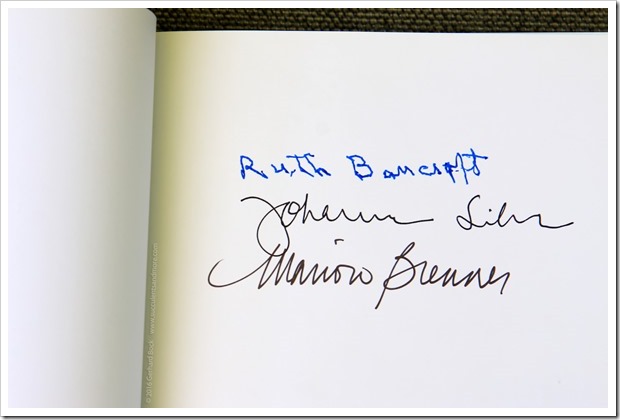 Ruth Bancroft
Johanna Silver
Marion Brenner
© 2016 Gerhard Bock www.succulentsandmore.com